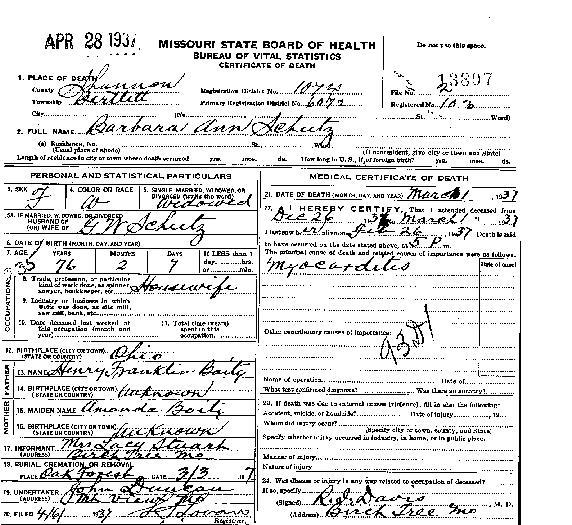 APR 28 1937
MISSOURI STATE BOARD OF HEALTH
BUREAU OF VITAL STATISTICS
CERTIFICATE OF DEATH
Do not use this space.
1. PLACE OF DEATH
County Shannon
Registration District No. 1072
File No.
13397
Township Bartlett
Primary Registration District No. 6072
Registered No.
City
(No.
St.
Ward)
2. FULL NAME Barbara Ann Schutz
(a) Residence, No.
St.
Ward.
(Usual place of abode)
(If nonresident, give city or town and State)
Length of residence in city or town where death occurred yrs. mos. ds. How long in U. S., if of foreign birth? yrs. mos. ds.
PERSONAL AND STATISTICAL PARTICULARS
3. SEX F
4. COLOR OR RACE W
5. SINGLE, MARRIED, WIDOWED, OR DIVORCED (write the word) Widowed
5A. IF MARRIED, WIDOWED, OR DIVORCED
HUSBAND OF
(OR) WIFE OF G W Schutz
6. DATE OF BIRTH (MONTH, DAY, AND YEAR)
7. AGE YEARS MONTHS DAYS If LESS than 1
76 2 7
day, hrs.
or min.
OCCUPATION
8. Trade, profession, or particular
kind of work done, as spinner,
sawyer, bookkeeper, etc. Housewife
9. Industry or business in which
work was done, as silk mill,
saw mill, bank, etc.
10. Date deceased last worked at
this occupation (month and
year)
11. Total time (years)
spent in this
occupation
12. BIRTHPLACE (CITY OR TOWN) Ohio
(STATE OR COUNTRY)
FATHER
13. NAME Henry Franklin Baity
14. BIRTHPLACE (CITY OR TOWN) Unknown
(STATE OR COUNTRY)
MOTHER
15. MAIDEN NAME Amanda
16. BIRTHPLACE (CITY OR TOWN) Unknown
(STATE OR COUNTRY)
17. INFORMANT Mrs Lacy Stuart
(ADDRESS) Birch Tree Mo
18. BURIAL, CREMATION, OR REMOVAL
PLACE Oak Forest DATE 3/3
19. UNDERTAKER John Duncan
(ADDRESS) Mt View Mo
20. FILED 4/6/ 1937
Registrar
MEDICAL CERTIFICATE OF DEATH
21. DATE OF DEATH (MONTH, DAY, AND YEAR) March 1, 1937
22. I HEREBY CERTIFY, That I attended deceased from
Dec 26 March 1 1937
I last saw her alive on Feb 26 1937 Death is said
to have occurred on the date stated above, at 5 p m.
The principal cause of death and related causes of importance were as follows:
Date of onset
Myocarditis
Other contributory causes of importance:
93D1
Name of operation Date of
What test confirmed diagnosis? Was there an autopsy?
23. If death was due to external causes (violence), fill in also the following:
Accident, suicide, or homicide? Date of injury 19
Where did injury occur?
(Specify city or town, county, and State)
Specify whether injury occurred in industry, in home, or in public place.
Manner of injury
Nature of injury
24. Was disease or injury in any way related to occupation of deceased?
If so, specify
(Signed) R. D. Davis, M. D.
(Address) Birch Tree Mo